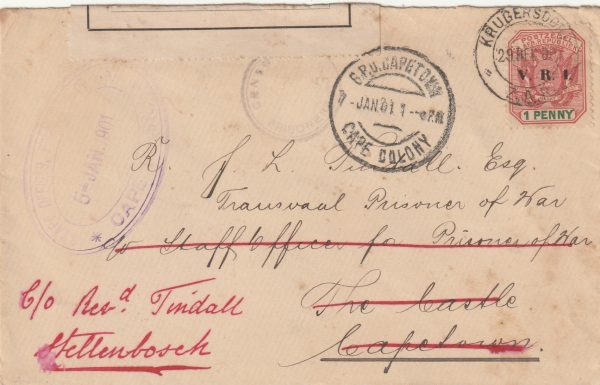 KRUGERSDORP
Z.A.R.
POSTZEGEL
V. R. I.
1 PENNY
G.P.O. CAPETOWN
JAN 01
CAPE COLONY
5-JAN 1901
R. J. L. Tindall. Esq.
Transvaal Prisoner of War
c/o Staff Officer for Prisoner of War
The Castle
Capetown.
C/o Revd. Tindall
Stellenbosch